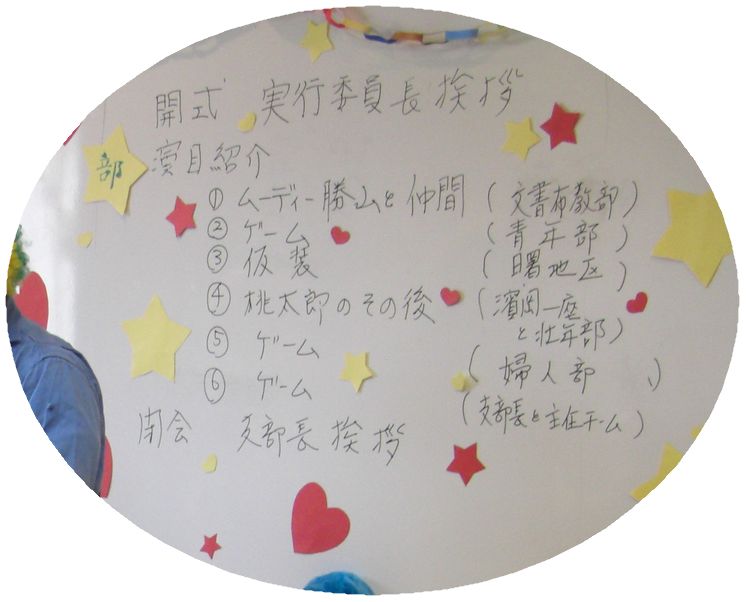 開式 実行委員長挨拶
部
演目紹介
① ムーディー勝山と仲間 (文書布教部)
② ゲーム (青年部)
③ 仮装 (曙地区)
④ 桃太郎のその後 (濱岡一座
と壮年部)
⑤ ゲーム (婦人部)
⑥ ゲーム (支部長と主任チーム)
閉会 支部長挨拶